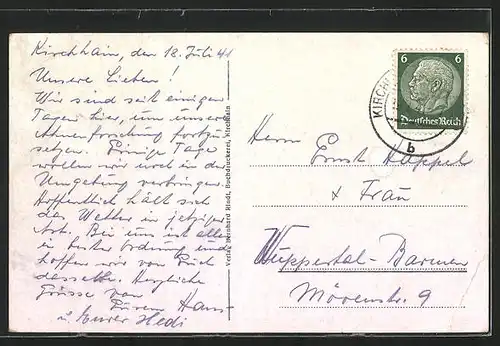 Kirchhain, den 18. Juli 41
Unsere Lieben!
Wir sind seit einigen
Tagen hier, um unsere
Ahnenforschung fortzu-
setzen. Einige Tage
wollen wir noch in der
Umgebung verbringen.
Hoffentlich hält sich
das Wetter in jetziger
Art. Bei uns ist alles
in bester Ordnung und
hoffen wir von Euch
dasselbe. Herzliche
Grüsse von
Euren Hans
u. Eurer Hedi
Verlag Reinhard Riedt, Buchdruckerei, Kirchhain
6 6
Deutsches Reich
KIRCHH
b
Herrn Ernst Happel
+ Frau
Wuppertal-Barmen
Mövenstr. 9